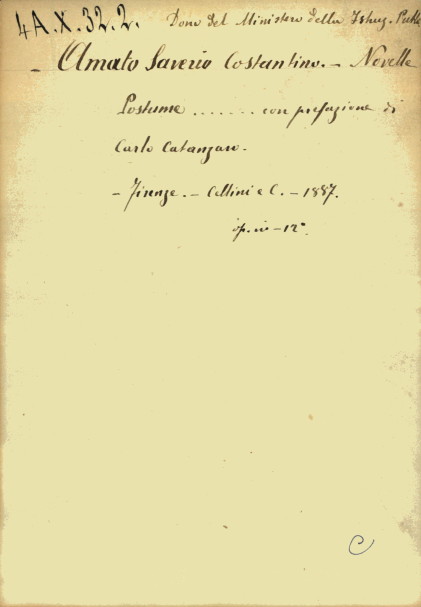 4A.X.32.2. Dono del Ministero della Istruz. Pubbl
- Amato Saverio Costantino. - Novelle
Postume ....... con prefazione di
Carlo Catanzaro.
- Firenze. - Cellini e C. - 1887.
op. in - 12°
C